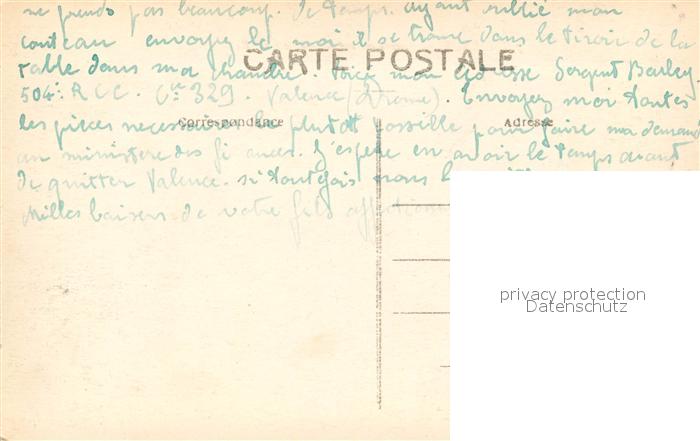 ne perds pas beaucoup de temps. Ayant oublié mon
couteau envoyez le moi il se trouve dans le tiroir de la
CARTE POSTALE
table dans ma chambre. Voici mon adresse Sergent
504e R C C. Cie 329. Valence (Drome). Envoyez moi toutes
Correspondance
Adresse
les pièces necessaires le plutôt possible pour faire ma demande
au ministère des finances. J'espère en avoir le temps avant
de quitter Valence. si toutefois nous
Milles baisers de votre fils
privacy protection
Datenschutz